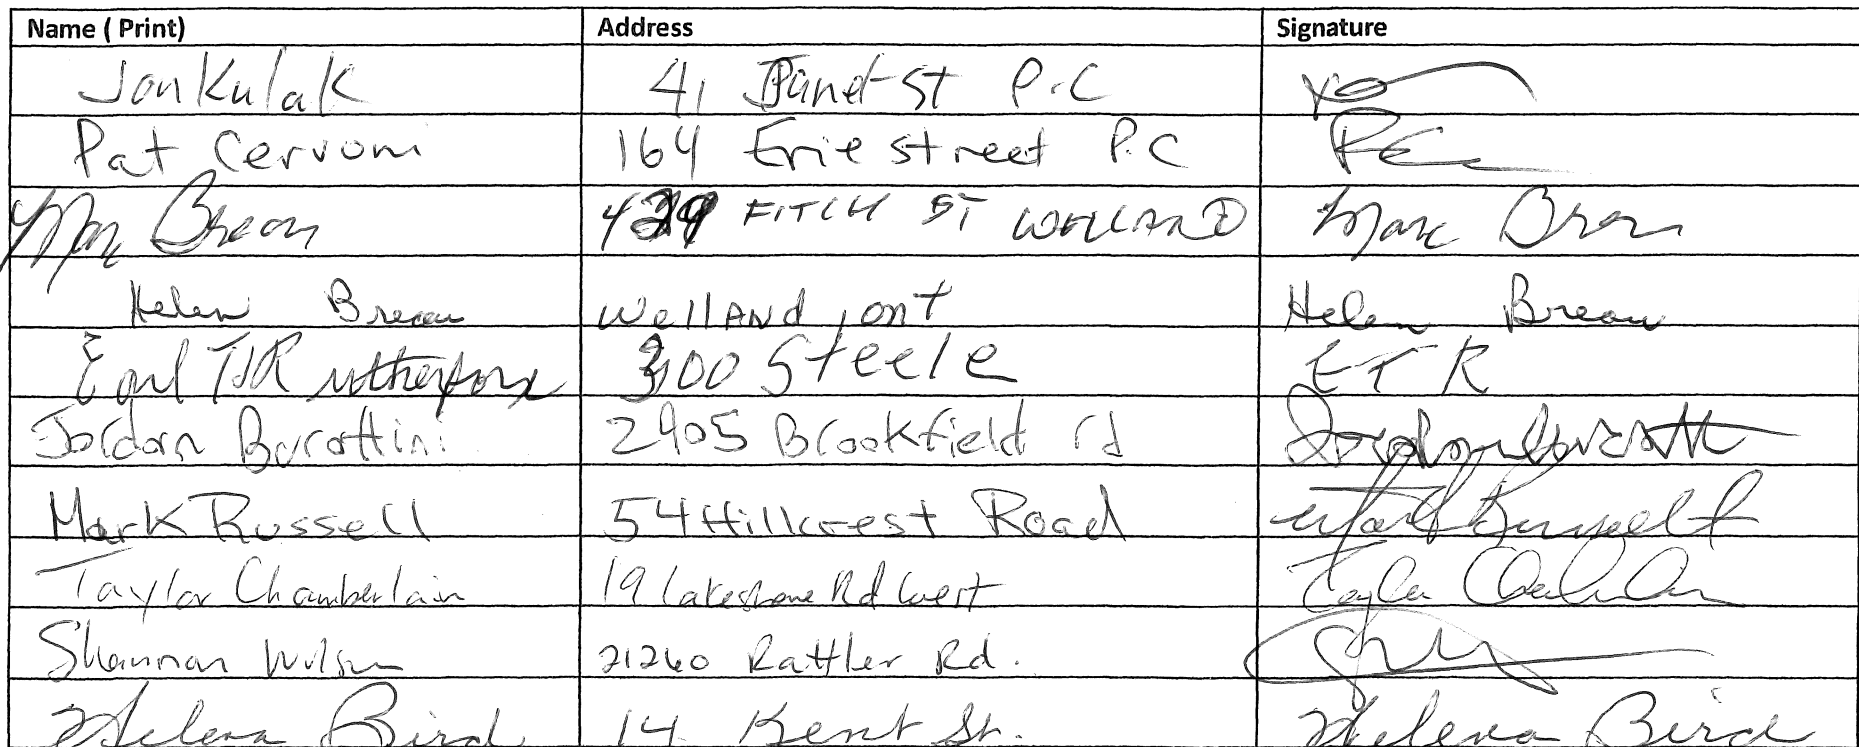 Name ( Print) Address Signature
Jon Kulak 41 Janet St P.C
Pat Cervoni 164 Erie street P.C PC
Marc Breau 429 FITCH ST WELLAND Marc Breau
Helen Breau WellAnd, ont Helen Breau
Earl T.R Rutherford 300 Steele E T R
Jordan Barattini 2905 Brookfield rd
Mark Russell 54 Hillcrest Road Mark Russell
Taylor Chamberlain 19 Lakeshore Rd West Taylor
Shannon Wilson 21260 Rattler Rd.
Helena Bird 14 Kent St. Helena Bird